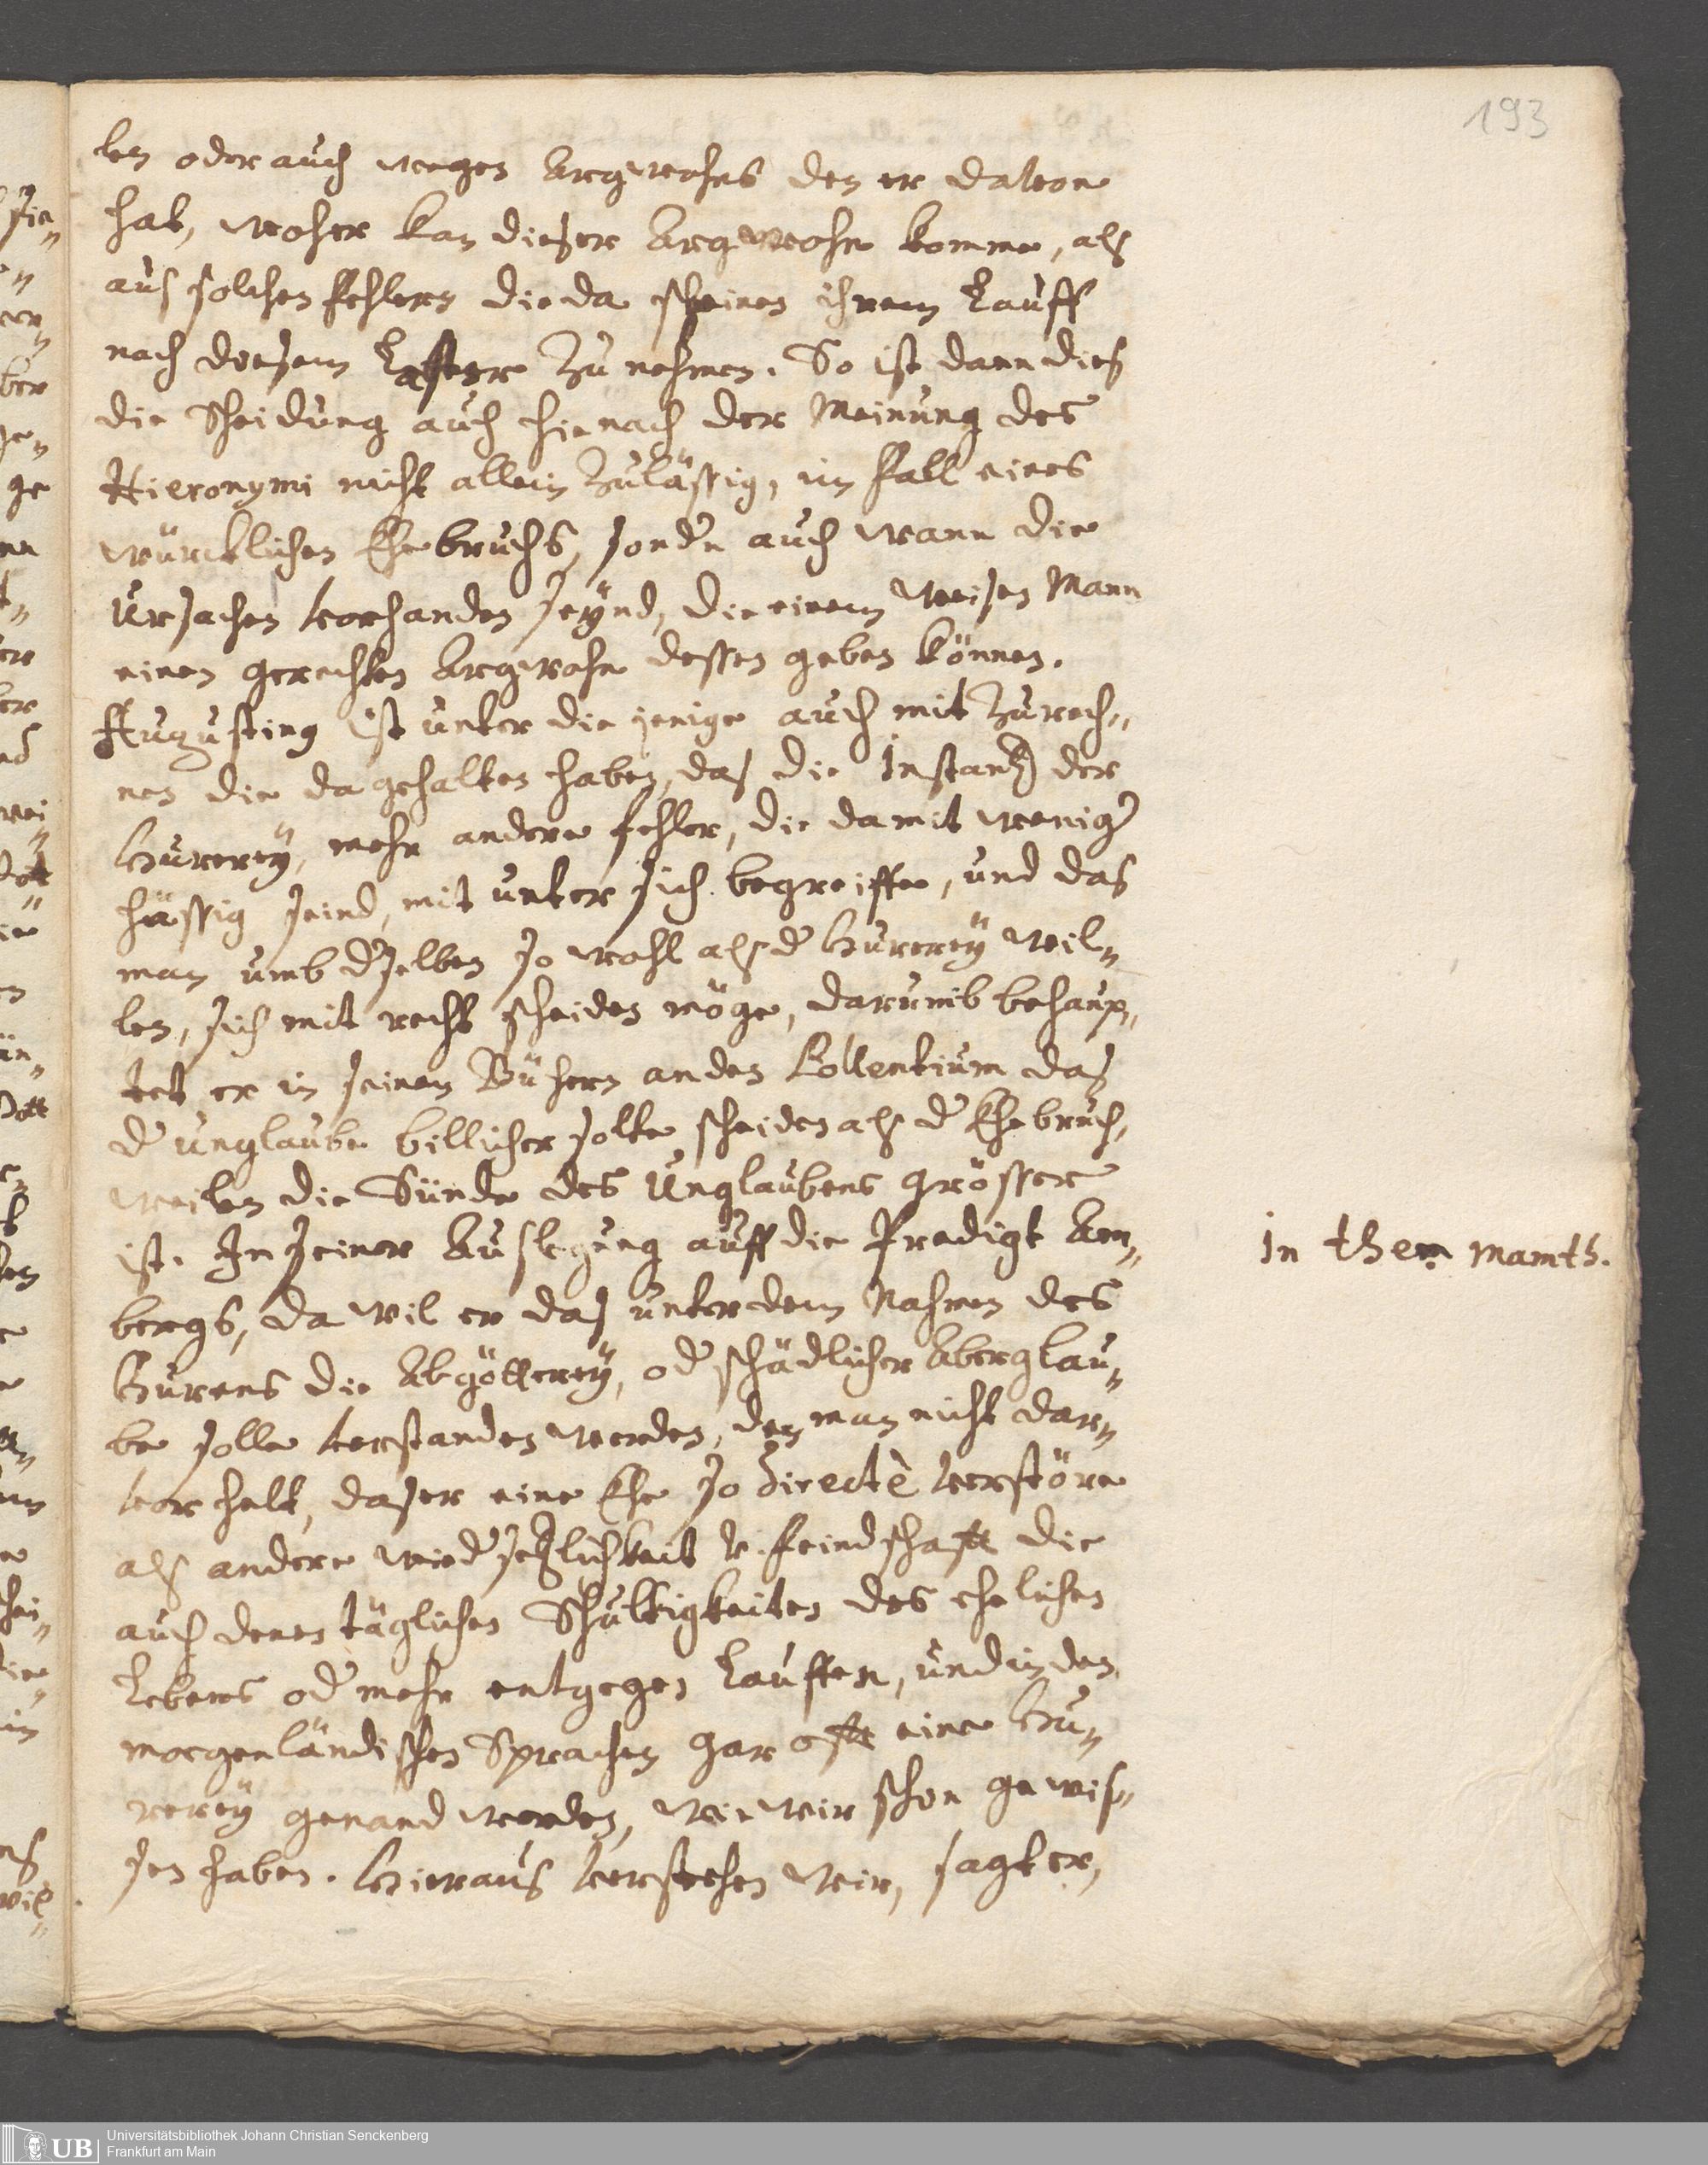 193
len oder auch wegen Argwohns den er davon
hat, woher kan dieser Argwohn komme, als
aus solchen fehlern die da scheinen ihrem Lauff
nach diesem Laster zu nehmen. So ist dann dies
die Scheidung auch hie nach der Meinung des
Hieronymi nicht allein zulässig, im fall eines
würcklichen Ehebruchs, sondn auch wann die
Ursachen vorhanden seynd, die einem Weisen Mann
einen gerechten Argwohn dessen geben können.
Augusting ist unter die jenige auch mit zu rech„
nen die da gehalten haben, das die Instantz der
Hurerey, mehr andere fehler, die damit weniger
hässig seind, mit unter sich begreiffe, und das
man umb dselben so wohl als d Hurerey wil„
len, sich mit recht scheiden möge, darumb behaup„
tet er in seinem Büchern an den Pollentium das
d unglaube billicher solte scheiden als d Ehebruch,
weilen die Sünde des Unglaubens grösser
ist. In seiner Auslegung auff die Predigt Am„
bergs, da wil er das unter dem Nahmen des
In them mamth.
Hurens die Abgötterey, od schädlicher Aberglau„
be solle verstanden werden, den man nicht dar„
vor helt, das er eine Ehe so directè verstöre
als andere widsetzlichkeit v. feindschafft die
auch denen täglichen Schultigkeiten des ehelichen
Lebens od mehr entgegen lauffen, und in den
morgenländischen Sprachen gar offt eine Hu„
rerey genand werden, wie wir schon gewis„
sen haben. Hieraus verstehen wir, sagt er,
UB Universitätsbibliothek Johann Christian Senckenberg
Frankfurt am Main